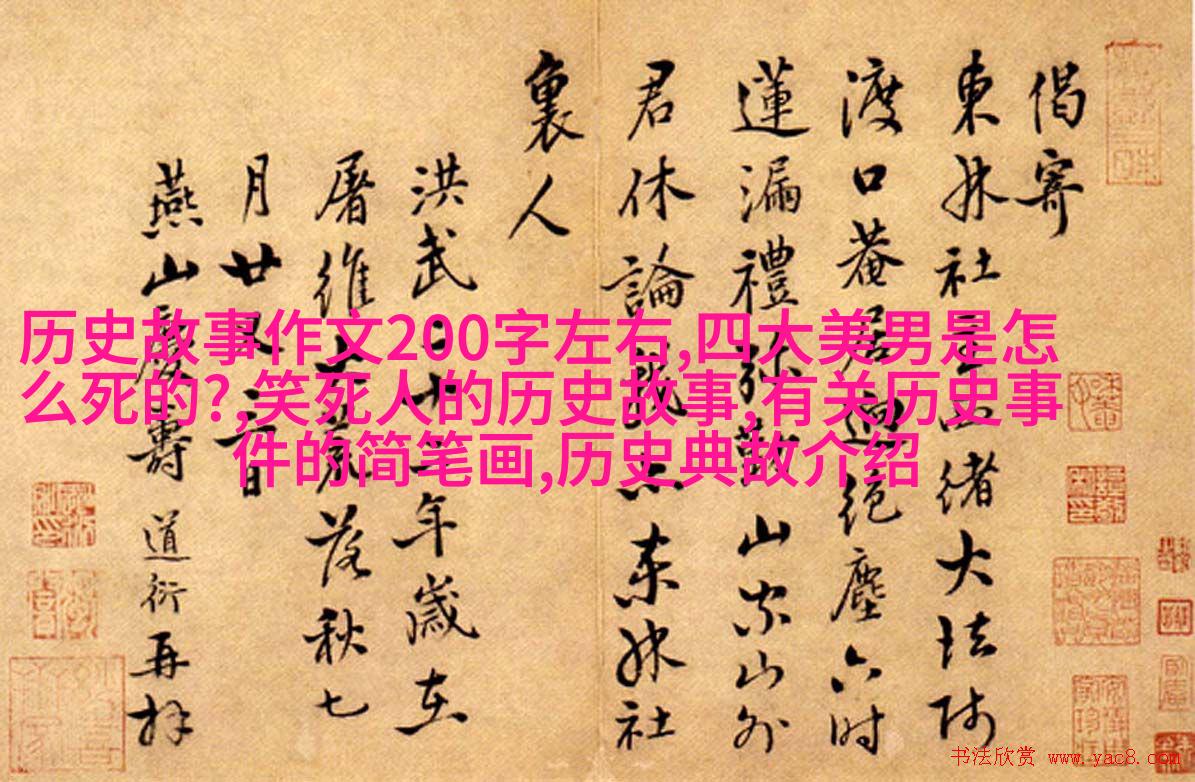 偈寄
東林社緒大法師
渡口菴居迥絕塵六時
蓮漏禮彌勤山宗山外
君休論亦東林社
裏人
洪武二十二年歲在
屠維大荒落秋七
月廿日
燕山慶壽道衍再拜
历史故事作文200字左右,四大美男是怎
么死的?,笑死人的历史故事,有关历史事
件的简笔画,历史典故介绍
书法欣赏 www.yac8.com